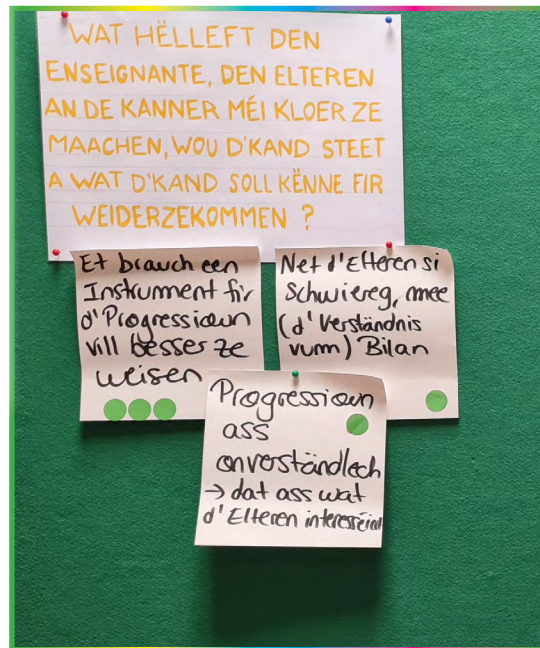 WAT HËLLEFT DEN
ENSEIGNANTE, DEN ELTEREN
AN DE KANNER MÉI KLOER ZE
MAACHEN, WOU D'KAND STEET
A WAT D'KAND SOLL KËNNE FIR
WEIDERZEKOMMEN ?
Et brauch een
Instrument fir
d'Progressioun
vill besser ze
weisen
Net d'Elteren si
Schwiereg, mee
(d'Verständnis
vum) Bilan
Progressioun
ass
onverständlech
→ dat ass wat
d'Elteren interesséiert